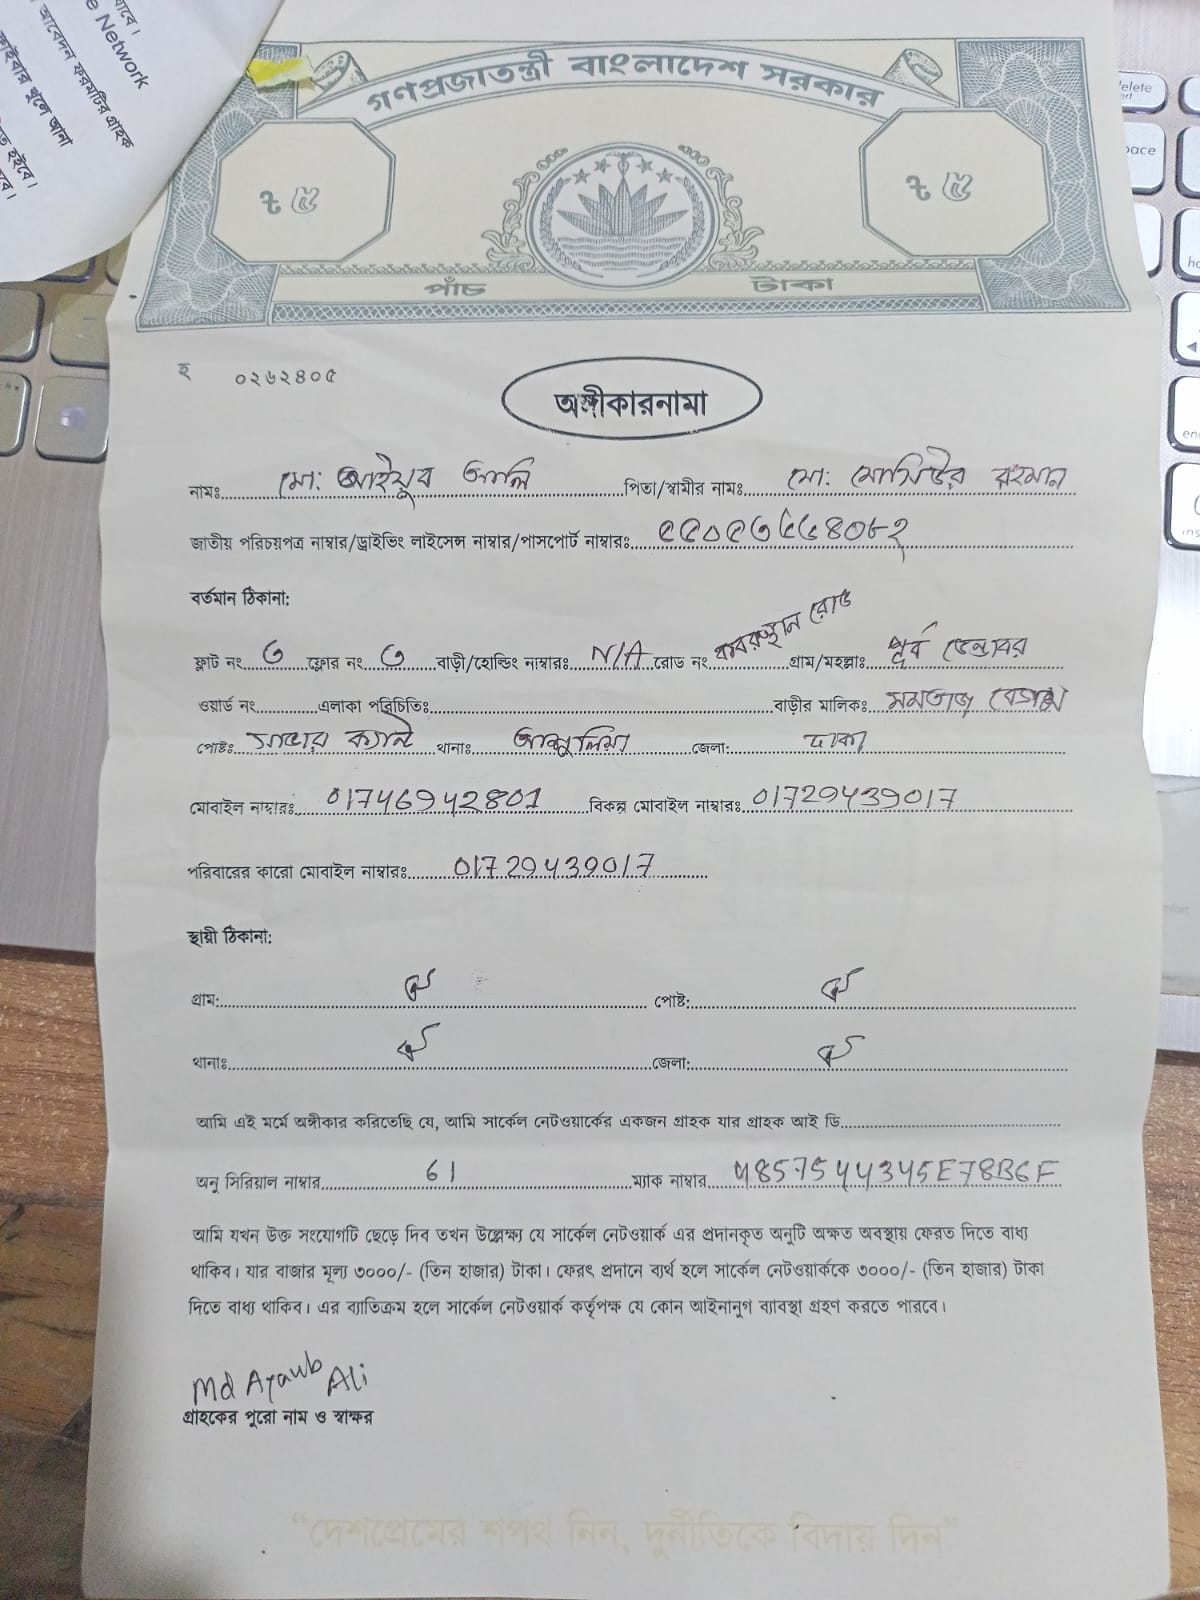 যাবে।
e Network
আবেদন ফরমটির গ্রাহক
ফাইবার খুলে আনা
হইবে।
গণপ্রজাতন্ত্রী বাংলাদেশ সরকার
ট ৫
ট ৫
পাঁচ টাকা
হ ০২৬২৪০৫
অঙ্গীকারনামা
নামঃ মো: আইয়ুব আলি পিতা/স্বামীর নামঃ মো: মোসিউর রহমান
জাতীয় পরিচয়পত্র নাম্বার/ড্রাইভিং লাইসেন্স নাম্বার/পাসপোর্ট নাম্বারঃ
বর্তমান ঠিকানা:
ফ্লাট নং ৩ ফ্লোর নং ৩ বাড়ী/হোল্ডিং নাম্বারঃ N/A রোড নং কবরস্থান রোড গ্রাম/মহল্লাঃ পূর্ব ডেন্ডাবর
ওয়ার্ড নং এলাকা পরিচিতিঃ বাড়ীর মালিকঃ মমতাজ বেগম
পোষ্টঃ সাভার ক্যান্ট থানাঃ আশুলিয়া জেলা: ঢাকা
মোবাইল নাম্বারঃ 01746942801 বিকল্প মোবাইল নাম্বারঃ 01729439017
পরিবারের কারো মোবাইল নাম্বারঃ 01729439017
স্থায়ী ঠিকানা:
গ্রাম: ঐ পোষ্ট: ঐ
থানাঃ ঐ জেলা: ঐ
আমি এই মর্মে অঙ্গীকার করিতেছি যে, আমি সার্কেল নেটওয়ার্কের একজন গ্রাহক যার গ্রাহক আই ডি
অনু সিরিয়াল নাম্বার 61 ম্যাক নাম্বার 4857544345E78B6F
আমি যখন উক্ত সংযোগটি ছেড়ে দিব তখন উল্লেক্ষ্য যে সার্কেল নেটওয়ার্ক এর প্রদানকৃত অনুটি অক্ষত অবস্থায় ফেরত দিতে বাধ্য
থাকিব। যার বাজার মূল্য ৩০০০/- (তিন হাজার) টাকা। ফেরৎ প্রদানে ব্যর্থ হলে সার্কেল নেটওয়ার্ককে ৩০০০/- (তিন হাজার) টাকা
দিতে বাধ্য থাকিব। এর ব্যাতিক্রম হলে সার্কেল নেটওয়ার্ক কর্তৃপক্ষ যে কোন আইনানুগ ব্যাবস্থা গ্রহণ করতে পারবে।
Md Ayaub Ali
গ্রাহকের পুরো নাম ও স্বাক্ষর
“দেশপ্রেমের শপথ নিন, দুর্নীতিকে বিদায় দিন”